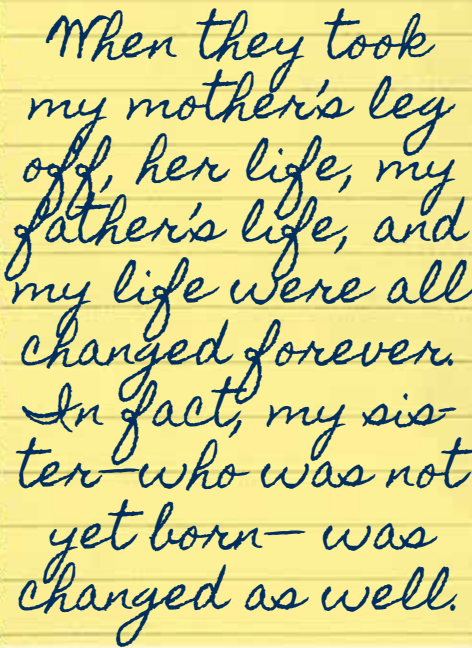 When they took
my mother's leg
off, her life, my
father's life, and
my life were all
changed forever.
In fact, my sis-
ter—who was not
yet born— was
changed as well.